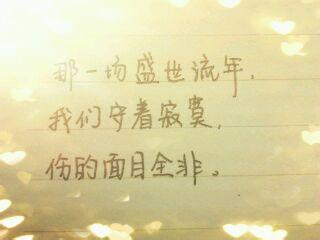 那一场盛世流年,
我们守着寂寞,
伤的面目全非。